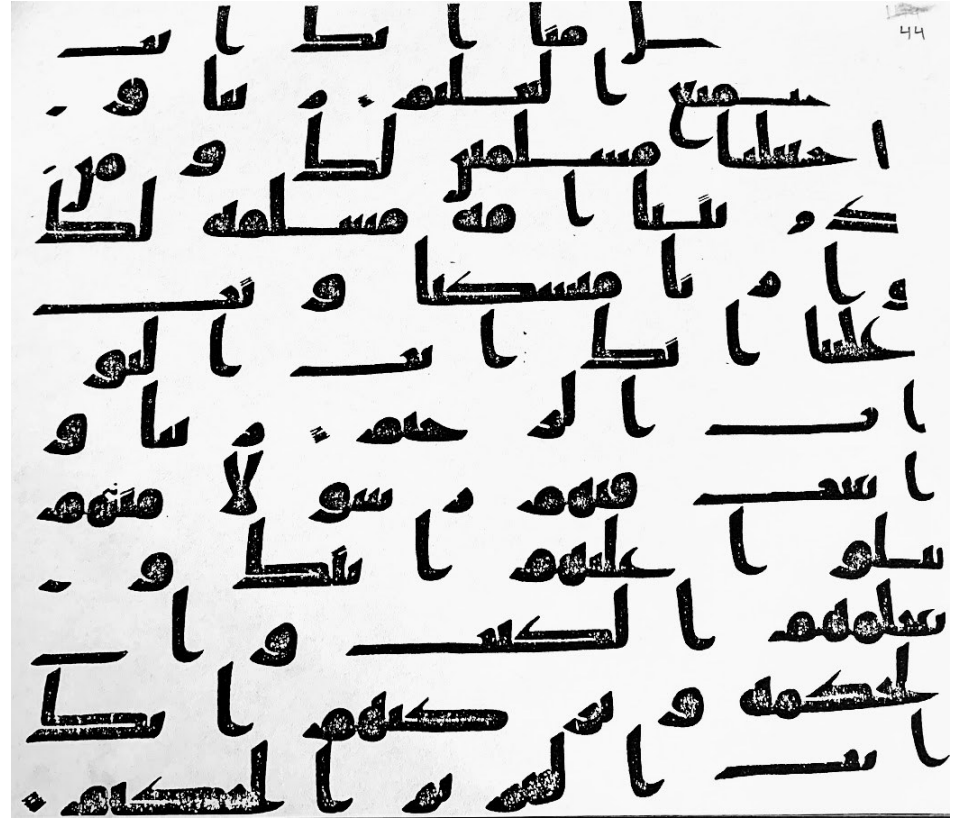 44
ل منا انك انت
السميع العليم ربنا و
اجعلنا مسلمين لك و من
ذريتنا امه مسلمه لك
و ارنا منسكنا و تب
علينا انك انت التو
اب الرحيم ربنا و
ابعث فيهم رسولا منهم
يتلوا عليهم ايتك و
يعلمهم الكتب و ا
لحكمه و يزكيهم انك
انت العزيز الحكيم